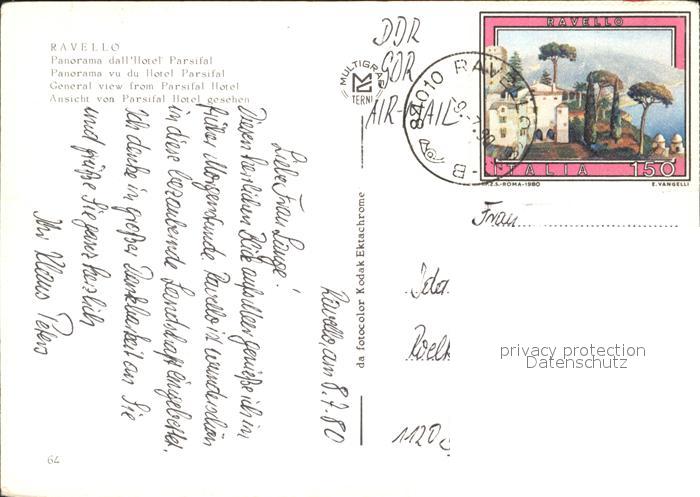 RAVELLO
Panorama dall'Hotel Parsifal
Panorama vu du Hotel Parsifal
General view from Parsifal Hotel
Ansicht von Parsifal Hotel gesehen
Ravello, am 8.7.80
Liebe Frau Lange!
Diesen herrlichen Blick aufs Meer genieße ich in
früher Morgenstunde. Ravello ist wunderschön
in diese bezaubernde Landschaft eingebettet.
Ich denke in großer Dankbarkeit an Sie
und grüße Sie ganz herzlich
Ihr Klaus Peters
64
MULTIGRAF
TERNI
da fotocolor Kodak Ektachrome
DDR
GDR
AIR-MAIL
84010 RAVELLO
RAVELLO
ITALIA 150
I.P.Z.S.-ROMA-1980 E. VANGELLI
Frau
1120
privacy protection
Datenschutz